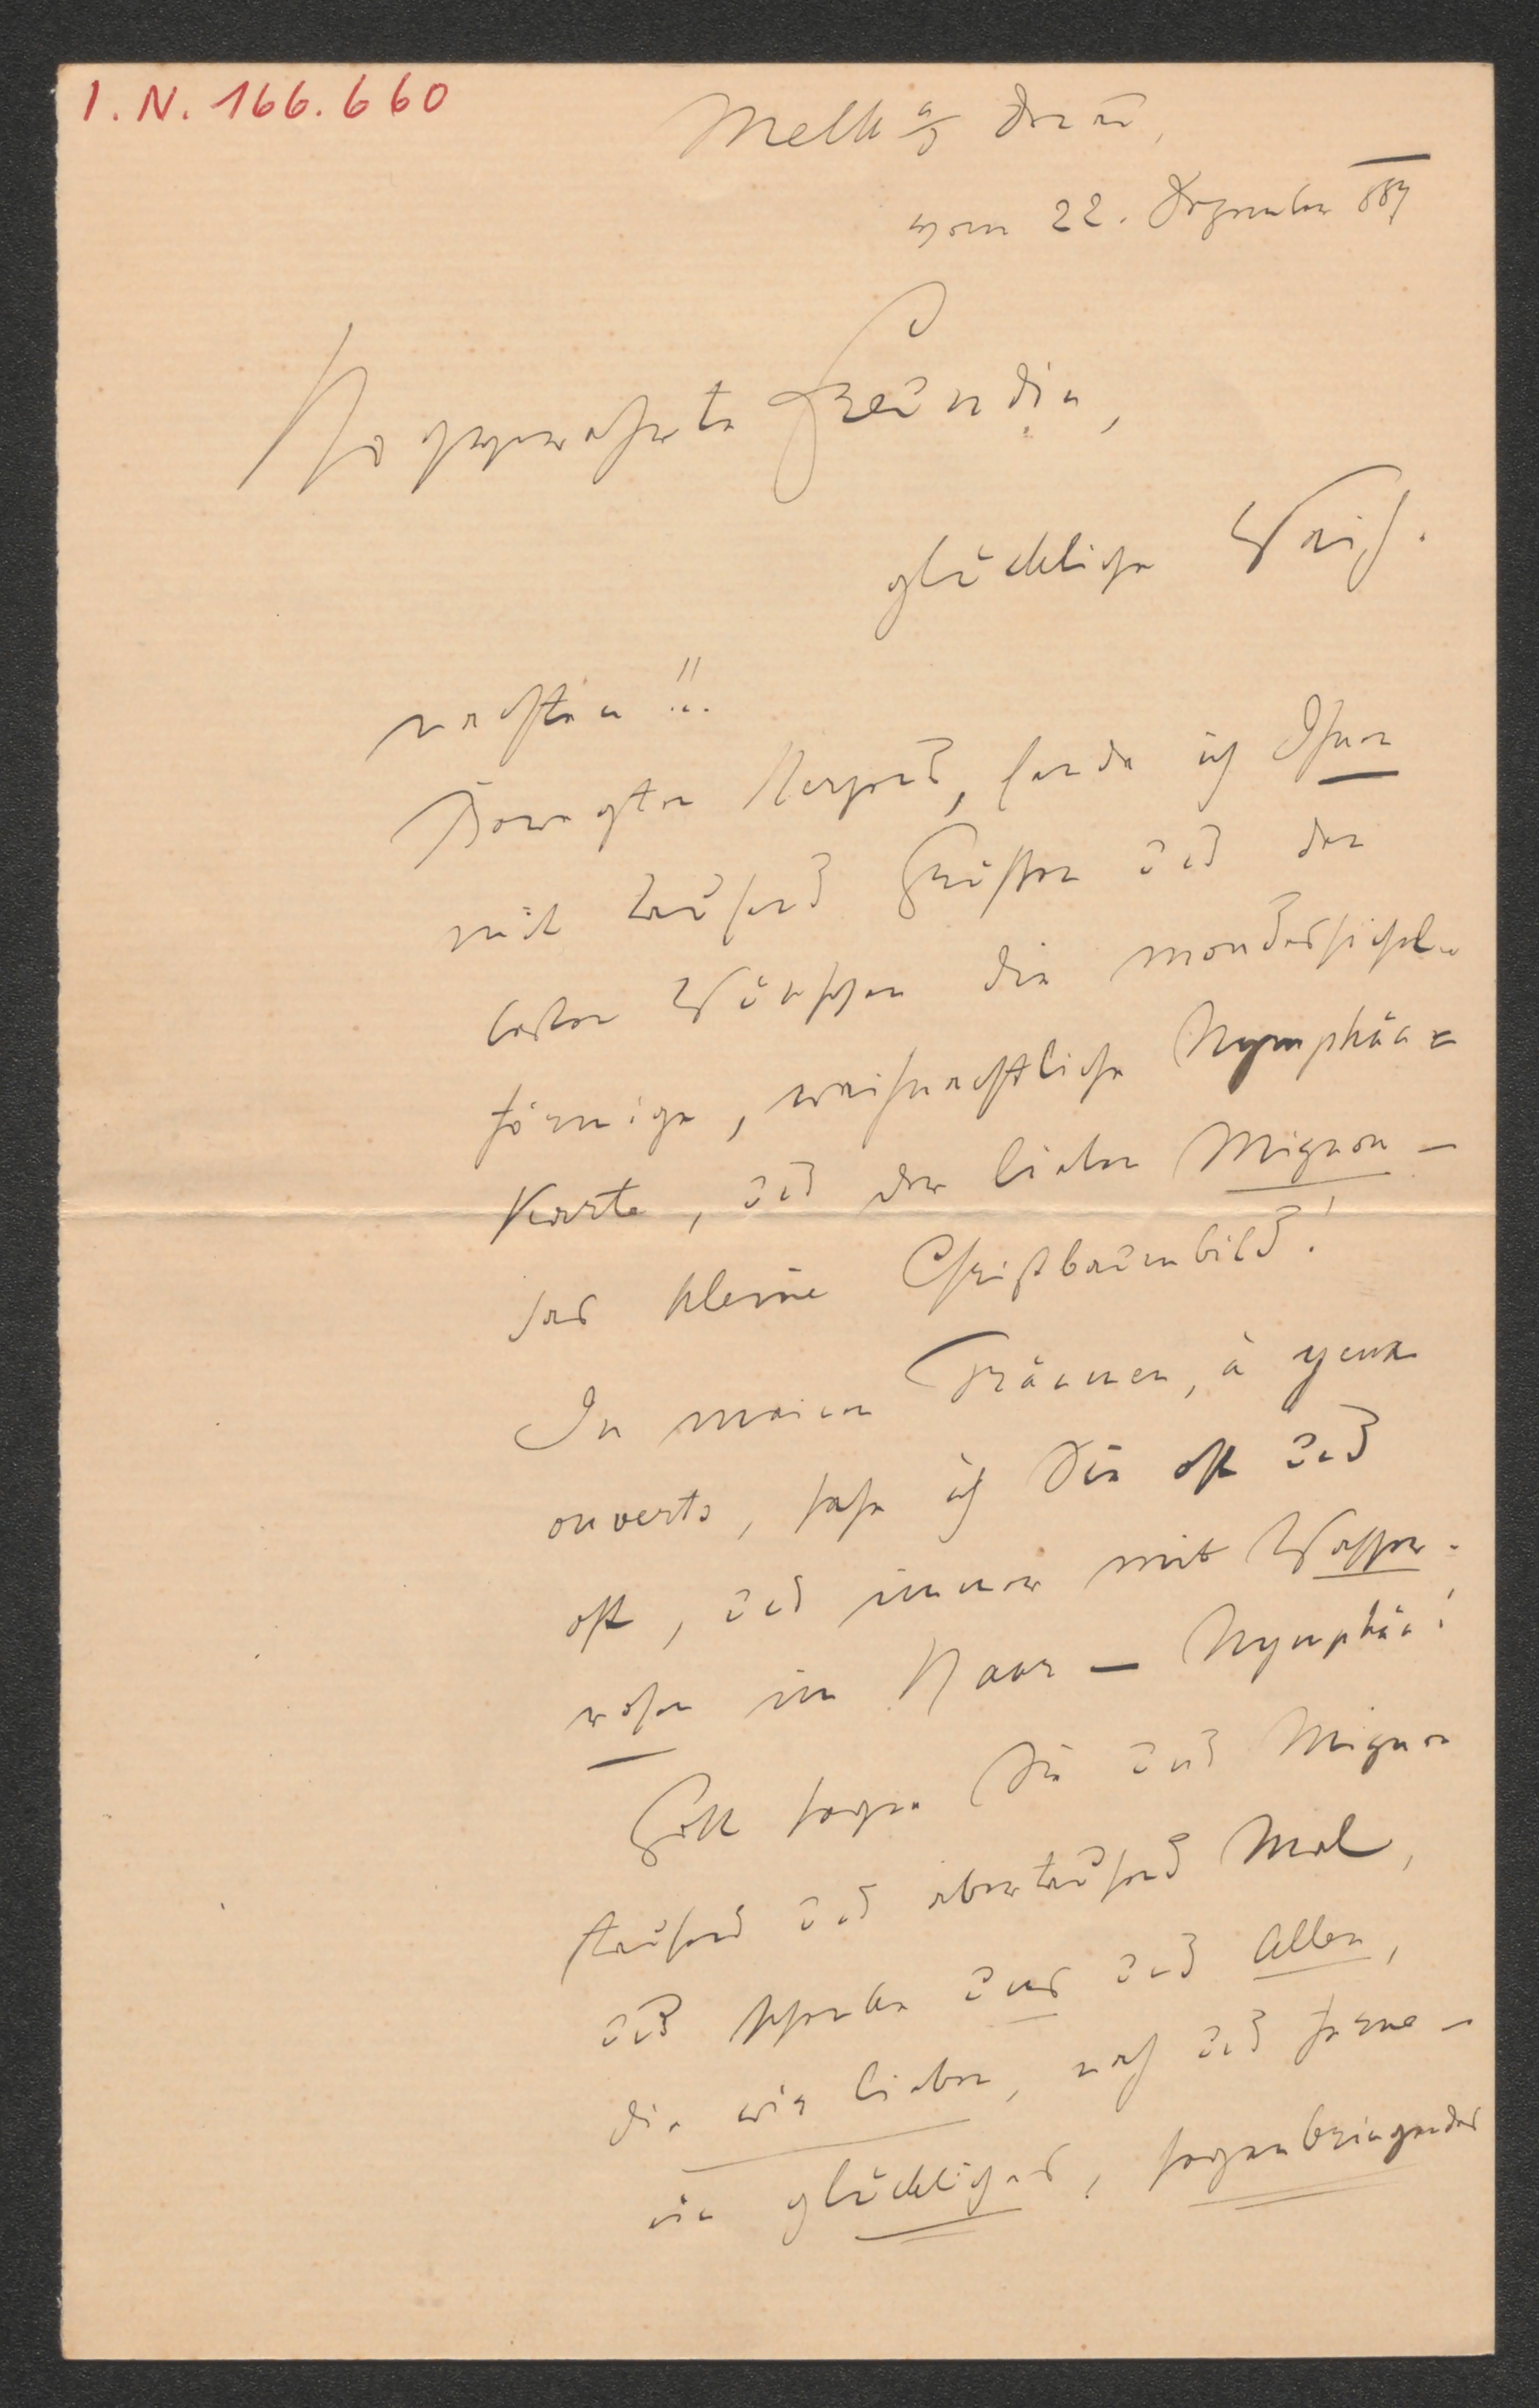 I. N. 166.660
Melk a/D Donau,
vom 22. Dezember 887
Hochverehrte Freundin,
glückliche Weih-
nachten!!
Bewegten Herzens, sende ich Ihnen
mit tausend Grüßen und den
besten Wünschen die
förmige, weihnachtliche Nymphäa=
Karte, und der lieben Mignon –
das kleine Christbaumbild!
In meinen Träumen, à yeux
ouverts, sehe ich Sie oft und
oft, und immer mit Wasser-
rosen im Haar – Nymphäa!
Gott segne Sie und Mignon
tausend und abertausend Mal,
und schenke uns und Allen,
die wir lieben, nah und ferne –
ein glückliches, segenbringendes